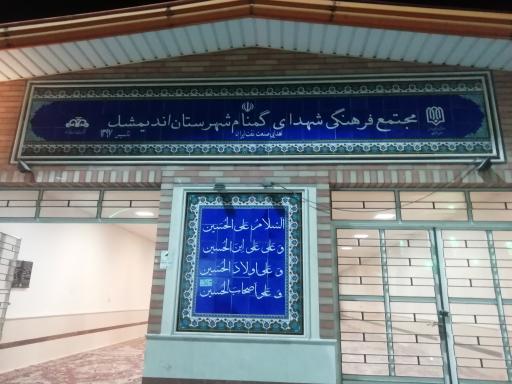 مجتمع فرهنگی شهدای گمنام شهرستان اندیمشک
اهدایی صنعت نفت ایران
تاسیس ۱۳۹۷
السلام علی الحسین
و علی علی ابن الحسین
و علی اولاد الحسین
و علی اصحاب الحسین